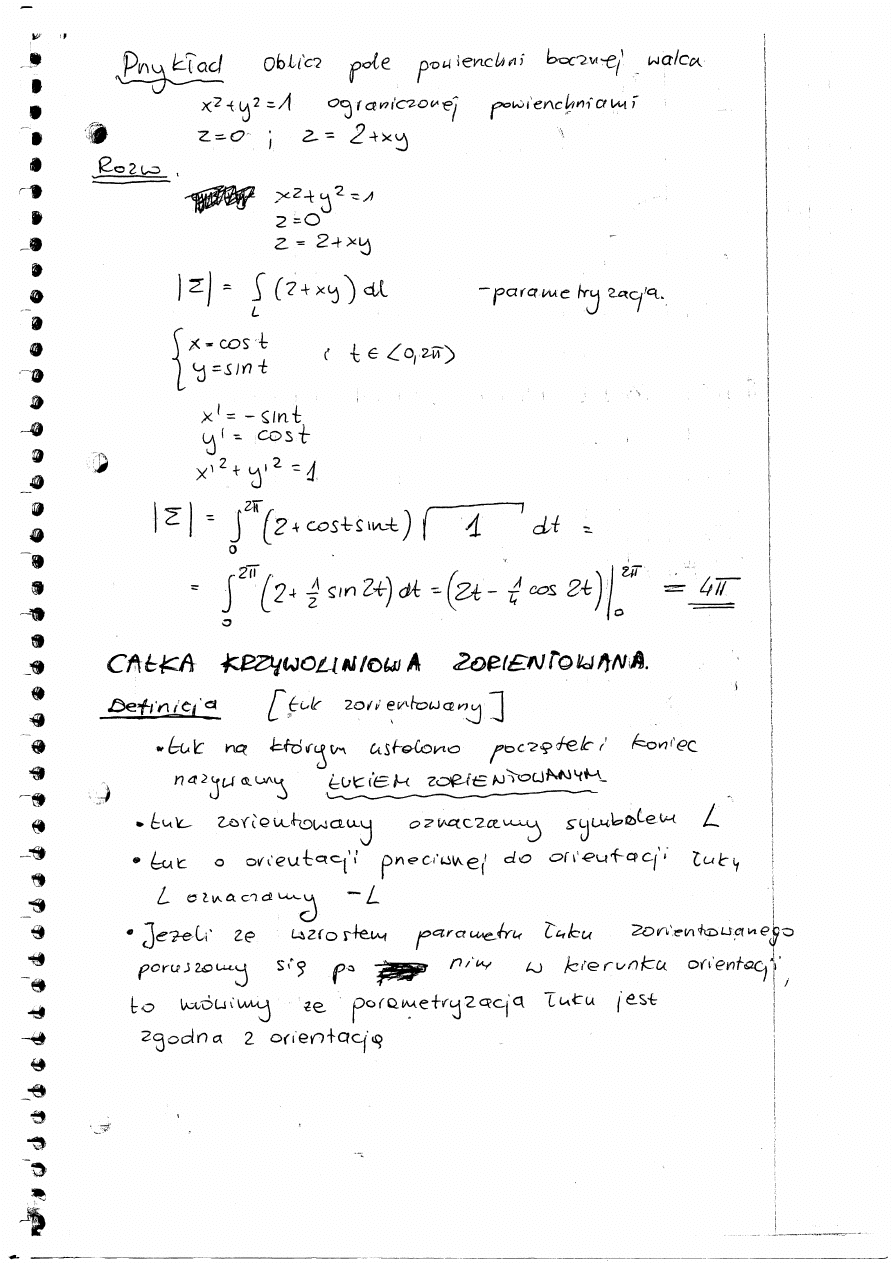 Przykład Oblicz pole powierzchni bocznej walca
x²+y²=1 ograniczonej powierzchniami
z=0 ; z = 2+xy
Rozw.
x²+y²=1
z=0
z = 2+xy
|Σ| = ∫_L (2+xy) dl - parametryzacja.
{ x = cos t
y = sin t , t ∈ <0,2π>
x' = - sin t
y' = cos t
x'² + y'² = 1
|Σ| = ∫₀^{2π} (2 + cost sint) √1 dt =
= ∫₀^{2π} (2 + 1/2 sin 2t) dt = (2t - 1/4 cos 2t)|₀^{2π} = 4π
CAŁKA KRZYWOLINIOWA ZORIENTOWANA.
Definicja [Łuk zorientowany]
• Łuk na którym ustalono początek i koniec
nazywamy ŁUKIEM ZORIENTOWANYM
• Łuk zorientowany oznaczamy symbolem L
• Łuk o orientacji przeciwnej do orientacji łuku
L oznaczamy -L
• Jeżeli ze wzrostem parametru łuku zorientowanego
poruszamy się po nim w kierunku orientacji,
to mówimy że parametryzacja łuku jest
zgodna z orientacją